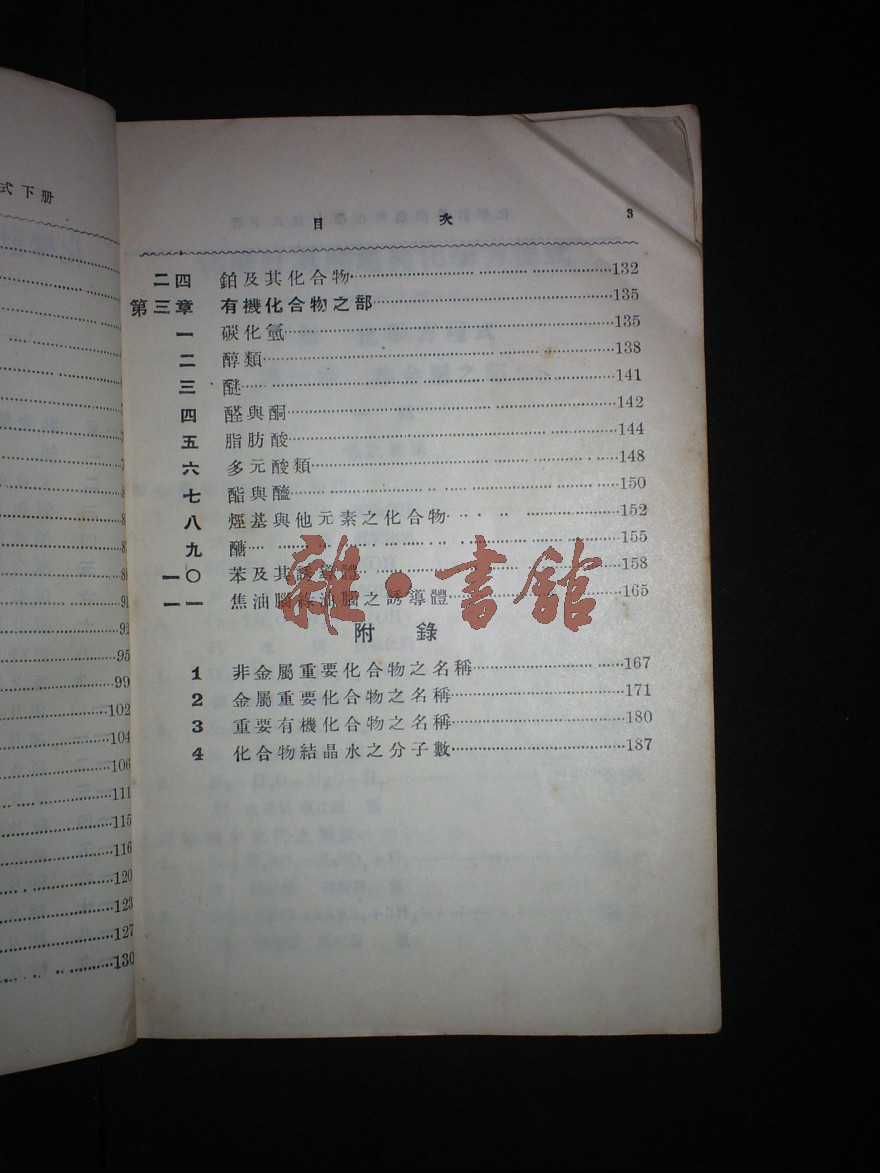 式下册
91
92
95
99
102
104
106
111
115
116
120
123
127
130
目 次 3
二四 鉑及其化合物 132
第三章 有機化合物之部 135
一 碳化氫 135
二 醇類 138
三 醚 141
四 醛與酮 142
五 脂肪酸 144
六 多元酸類 148
七 酯與醯 150
八 烴基與他元素之化合物 152
九 醣 155
一〇 苯及其誘導體 158
一一 焦油腦綠油腦之誘導體 165
附錄
1 非金屬重要化合物之名稱 167
2 金屬重要化合物之名稱 171
3 重要有機化合物之名稱 180
4 化合物結晶水之分子數 187
雜·書館